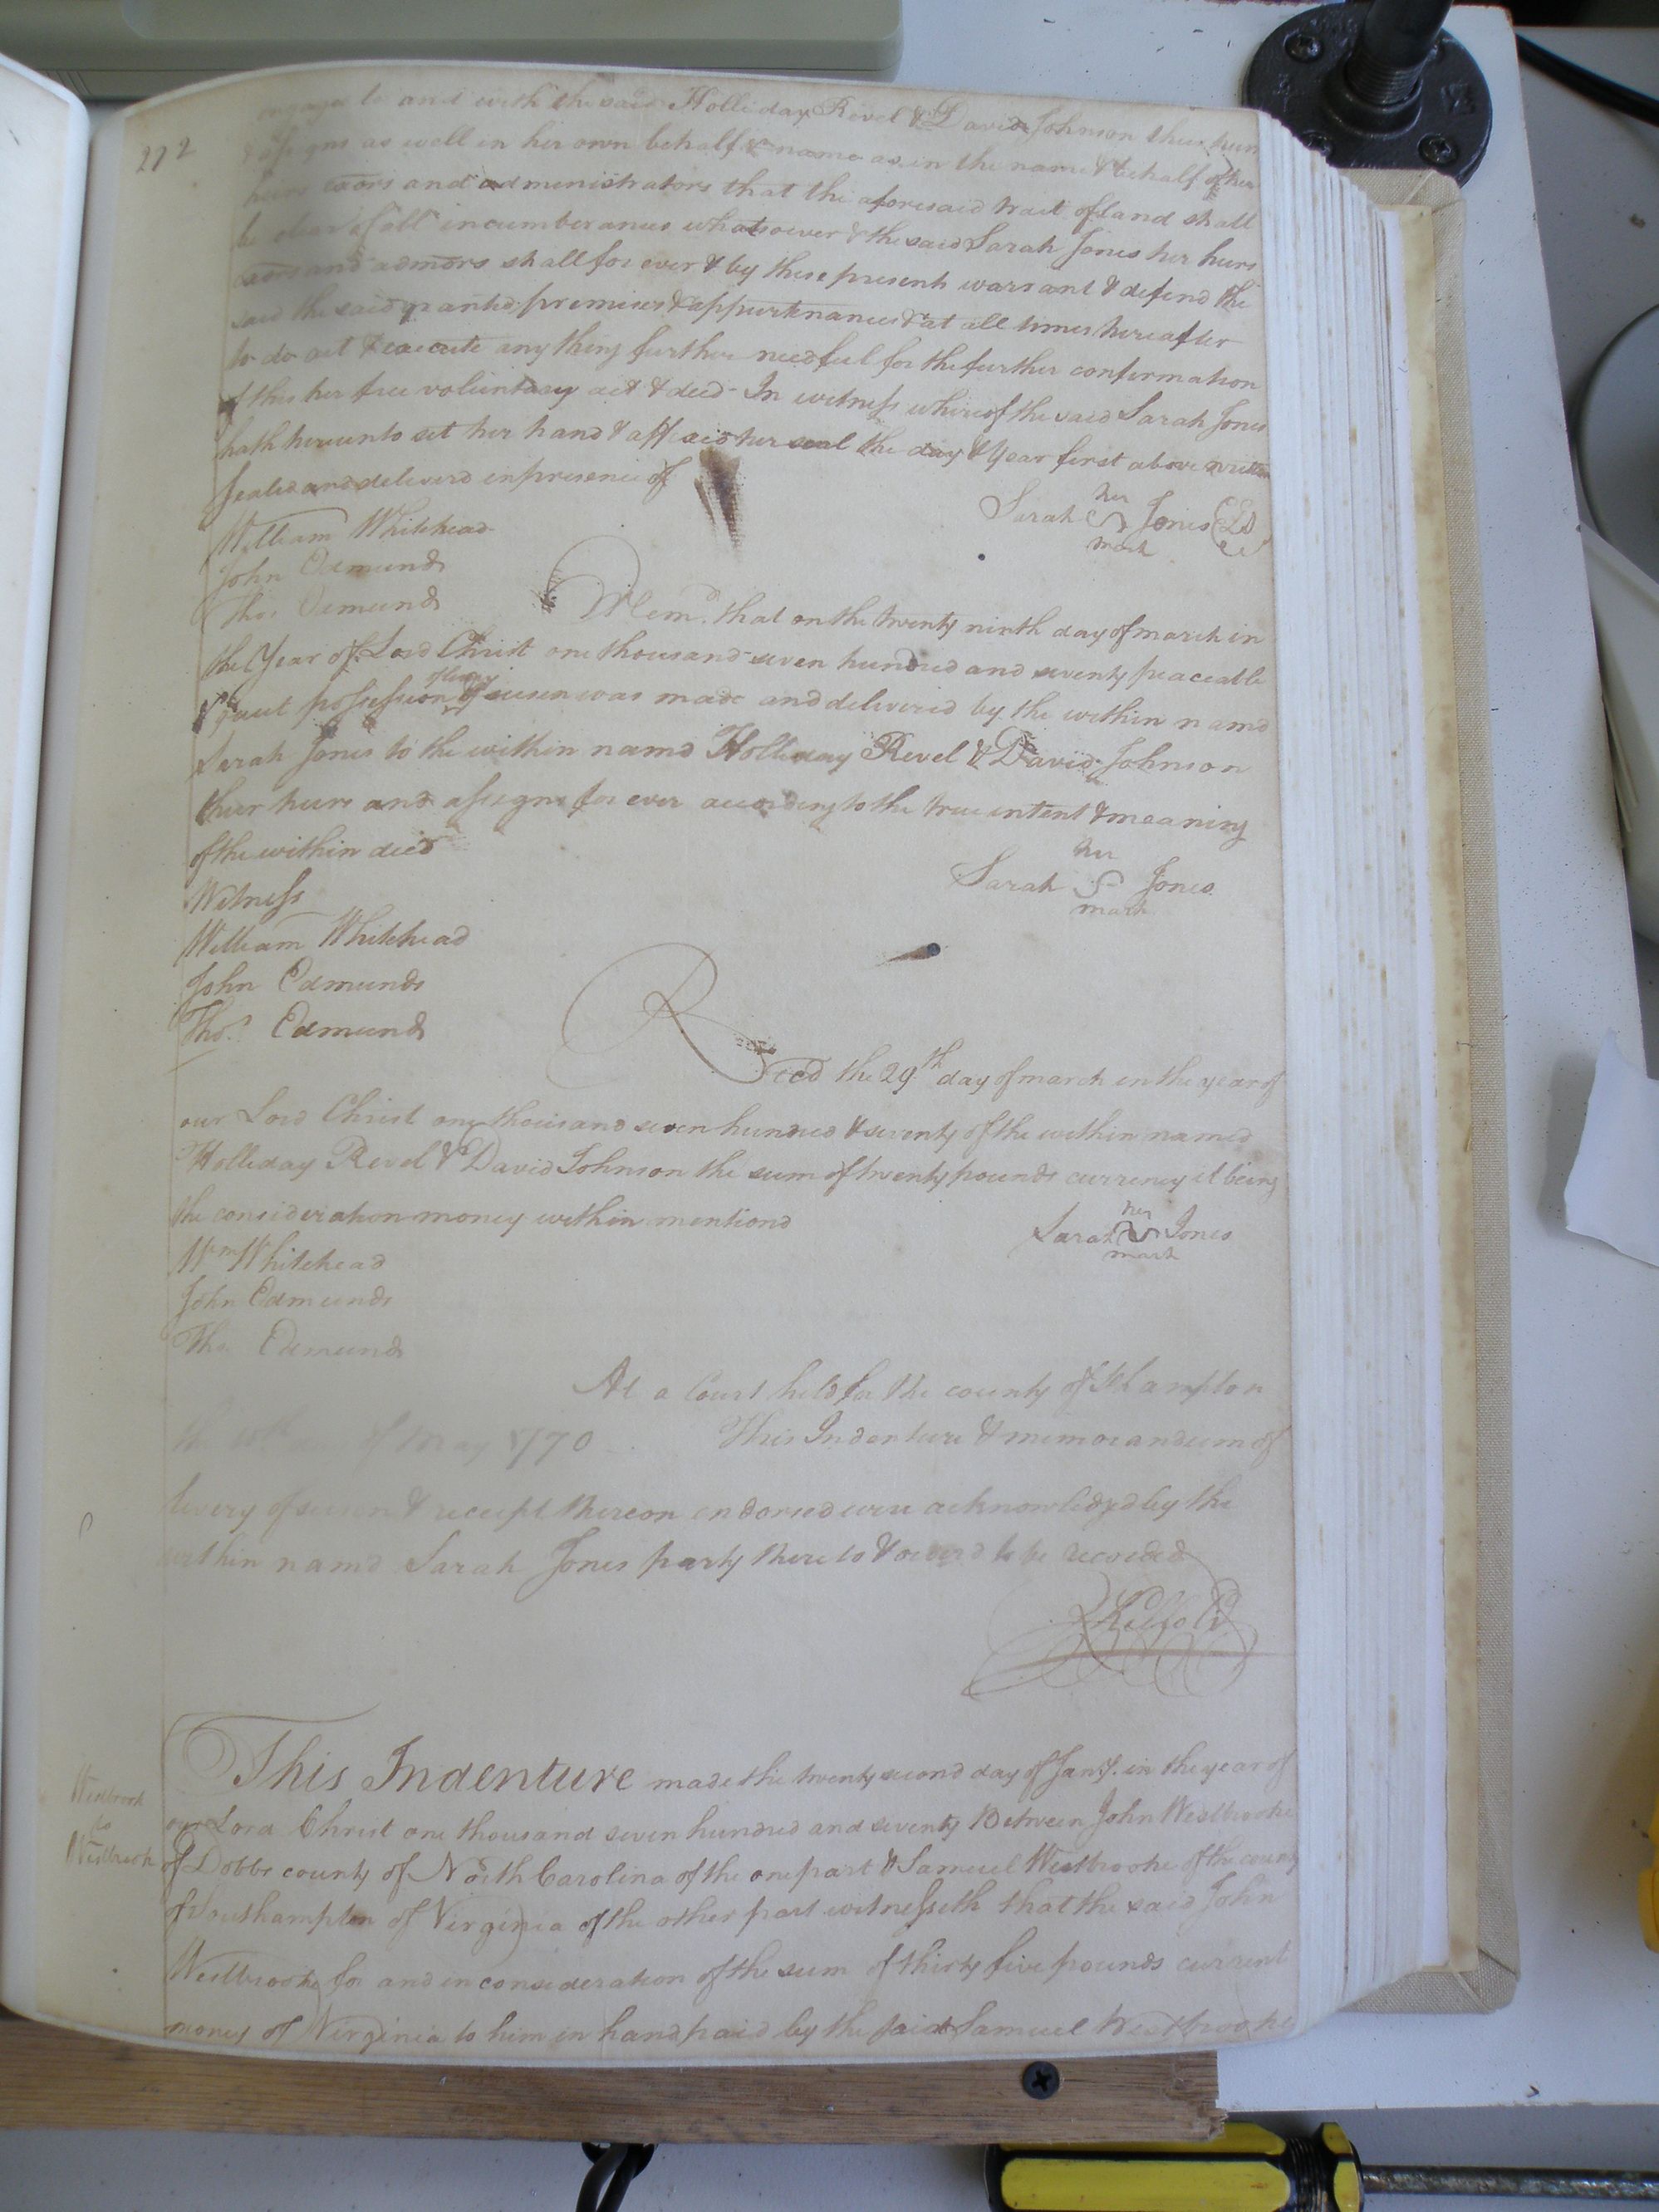 272
engage to and with the said Holliday Revel & David Johnson their heirs
& assigns as well in her own behalf & name as in the name & behalf of her
heirs exors and administrators that the aforesaid tract of land shall
be clear of all incumberances whatsoever & the said Sarah Jones her heirs
exors and admors shall for ever & by these presents warrant & defend the
said the said granted premises & appurtenances & at all times hereafter
to do act & execute any thing further needful for the further confirmation
of this her free voluntary act & deed In witness whereof the said Sarah Jones
hath hereunto set her hand & affixed her seal the day & Year first above written
Sealed and deliverd in presence of
her
Sarah Jones LS
mark
William Whitehead
John Edmunds
Thos Edmunds
Memd. that on the twenty ninth day of march in
the Year of Lord Christ one thousand seven hundred and seventy peaceable
& quiet possession of livery of seisen was made and delivered by the within namd
Sarah Jones to the within namd Holliday Revel & David Johnson
their heirs and assigns for ever according to the true intent & meaning
of the within deed
her
Sarah S Jones
mark
Witness
William Whitehead
John Edmunds
Thos. Edmunds
Recd the 29th day of march in the year of
our Lord Christ one thousand seven hundred & seventy of the within named
Holliday Revel & David Johnson the sum of twenty pounds currency it being
the consideration money within mentiond
her
Sarah Jones
mark
Wm Whitehead
John Edmunds
Tho Edmunds
At a Court held for the county of Shampton
the of May 1770 This Indenture & memorandum of
livery of seisen & receipt thereon endorsed were acknowledged by the
within namd Sarah Jones party thereto & orderd to be recorded
This Indenture made the twenty second day of Jany. in the year of
Westbrook
to
Westbrook
our Lord Christ one thousand seven hundred and seventy Between John Westbrooke
of Dobbs county of North Carolina of the one part & Samuel Westbrooke of the county
of Southampton of Virginia of the other part witnesseth that the said John
Westbrooke for and in consideration of the sum of thirty five pounds current
money of Virginia to him in hand paid by the said Samuel Westbrooke